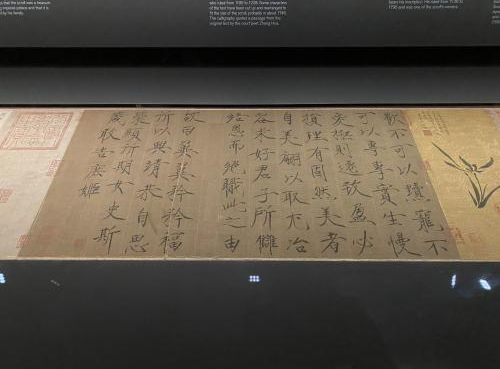 that the scroll was a treasure
imperial palace and that it
by his family.
who ruled from 1189 to 1208. Some characters
of the text have been cut up and rearranged to
fit the size of the scroll, probably in about 1746.
The calligraphy quoted a passage from the
original text by the court poet Zhang Hua.
his inscription. He ruled from 1736 to
1795 and was one of the scroll's owners
歡不可以黷寵不
可以專專實生慢
愛極則遷致盈必
損理有固然美者
自美翩以取尤冶
容求好君子所讎
結恩而絕職此之由
故曰翼翼矜矜福
所以興靖恭自思
榮顯所期女史斯
箴敢告庶姬